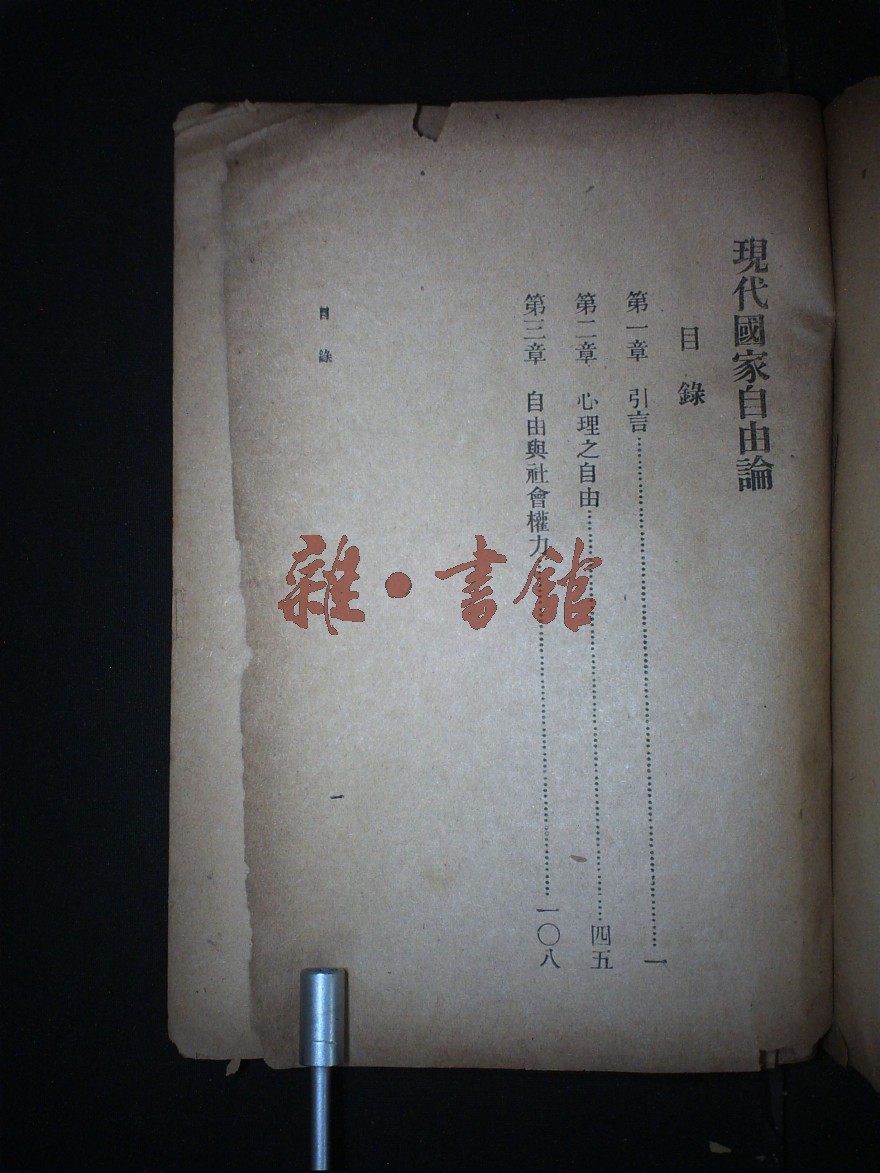 現代國家自由論
目錄
第一章 引言……………………一
第二章 心理之自由……………………四五
第三章 自由與社會權力……………………一〇八
目錄
一
雜·書館